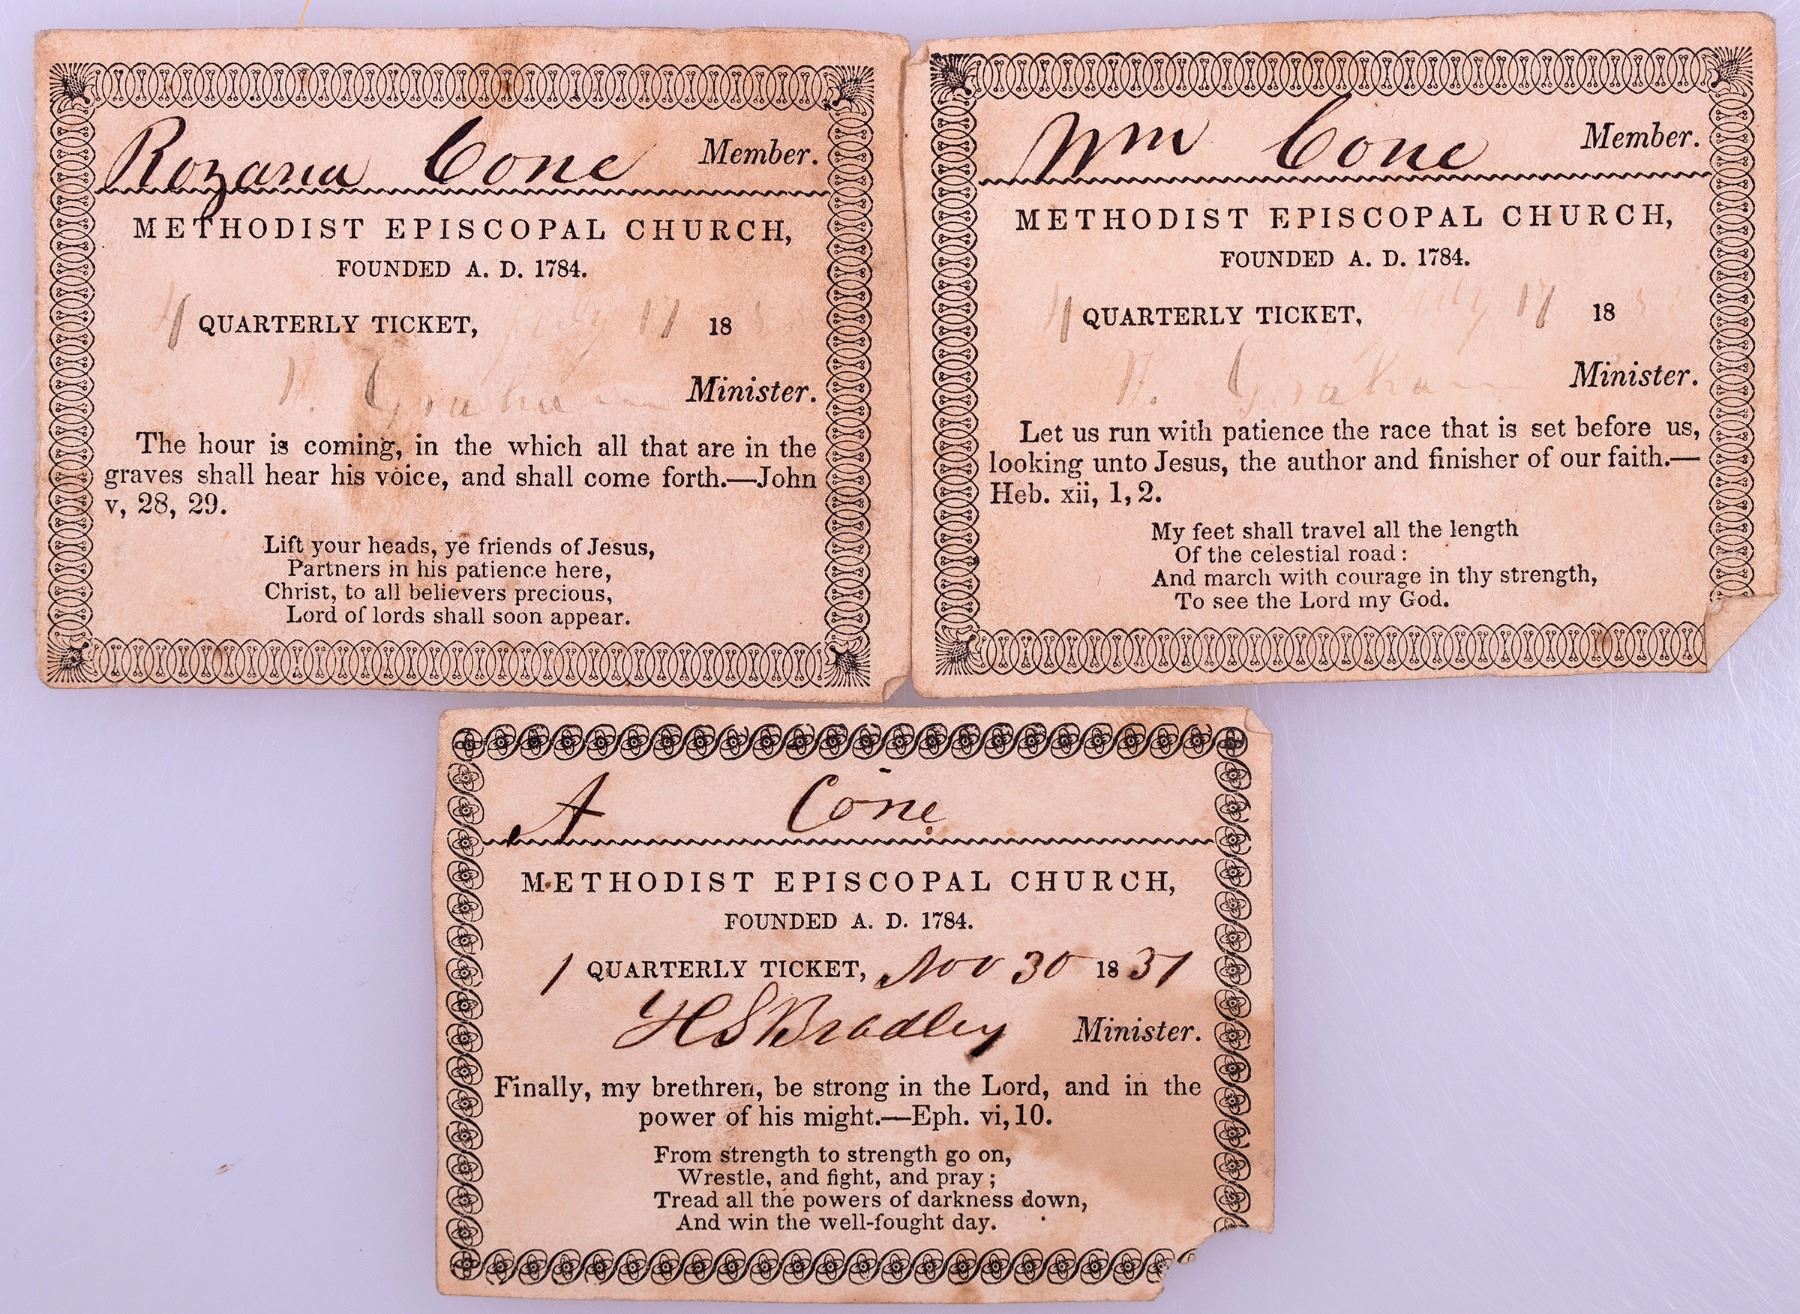 Rozana Cone Member.
METHODIST EPISCOPAL CHURCH,
FOUNDED A. D. 1784.
4 QUARTERLY TICKET, July 17 18
Graham Minister.
The hour is coming, in the which all that are in the
graves shall hear his voice, and shall come forth.—John
v, 28, 29.
Lift your heads, ye friends of Jesus,
Partners in his patience here,
Christ, to all believers precious,
Lord of lords shall soon appear.
Wm Cone Member.
METHODIST EPISCOPAL CHURCH,
FOUNDED A. D. 1784.
4 QUARTERLY TICKET, July 17 18
Graham Minister.
Let us run with patience the race that is set before us,
looking unto Jesus, the author and finisher of our faith.—
Heb. xii, 1, 2.
My feet shall travel all the length
Of the celestial road:
And march with courage in thy strength,
To see the Lord my God.
A Cone
METHODIST EPISCOPAL CHURCH,
FOUNDED A. D. 1784.
1 QUARTERLY TICKET, Nov 30 1837
H S Bradley Minister.
Finally, my brethren, be strong in the Lord, and in the
power of his might.—Eph. vi, 10.
From strength to strength go on,
Wrestle, and fight, and pray;
Tread all the powers of darkness down,
And win the well-fought day.